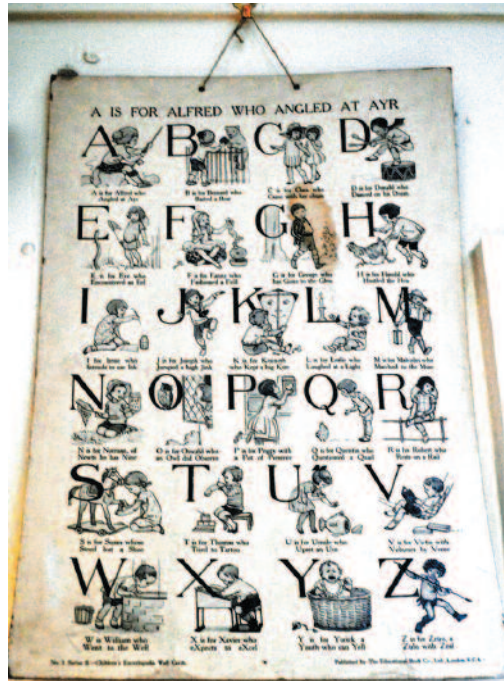 A IS FOR ALFRED WHO ANGLED AT AYR
A B C D
A is for Alfred who
Angled at Ayr
B is for Bernard who
Baited a Bear
C is for Clara who
Came with her
D is for Donald who
Danced on his Drum
E F G H
E is for Eve who
Encountered an Eel
F is for Fanny who
Fashioned a Frill
G is for George who
has Gone to the Glen
H is for Harold who
Hustled the Hen
I J K L M
I for Irene who
Intends to use Ink
J is for Joseph who
Jumped a high Jink
K is for Kenneth
who Kept a big Kite
L is for Leslie who
Laughed at a Light
M is for Malcolm who
Marched to the Moor
N O P Q R
N is for Norman, of
Newts he has
O is for Oswald who
an Owl did Observe
P is for Peggy with
a Pot of
Q is for Quentin who
Questioned a Quail
R is for Robert who
Rests on a Rail
S T U V
S is for Susan whose
Steed lost a Shoe
T is for Thomas who
Tried to Tattoo
U is for Ursula who
Upset an Urn
V is for with
Volumes by Verne
W X Y Z
W is William who
Went to the Well
X is for Xavier who
eXpects to eXcel
Y is for Yorick a
Youth who can Yell
Z is for a
Zulu with Zeal
No. 3 Series II—Children's Encyclopedia Wall Cards.
Published by The Educational Book Co., Ltd., London, E.C.4